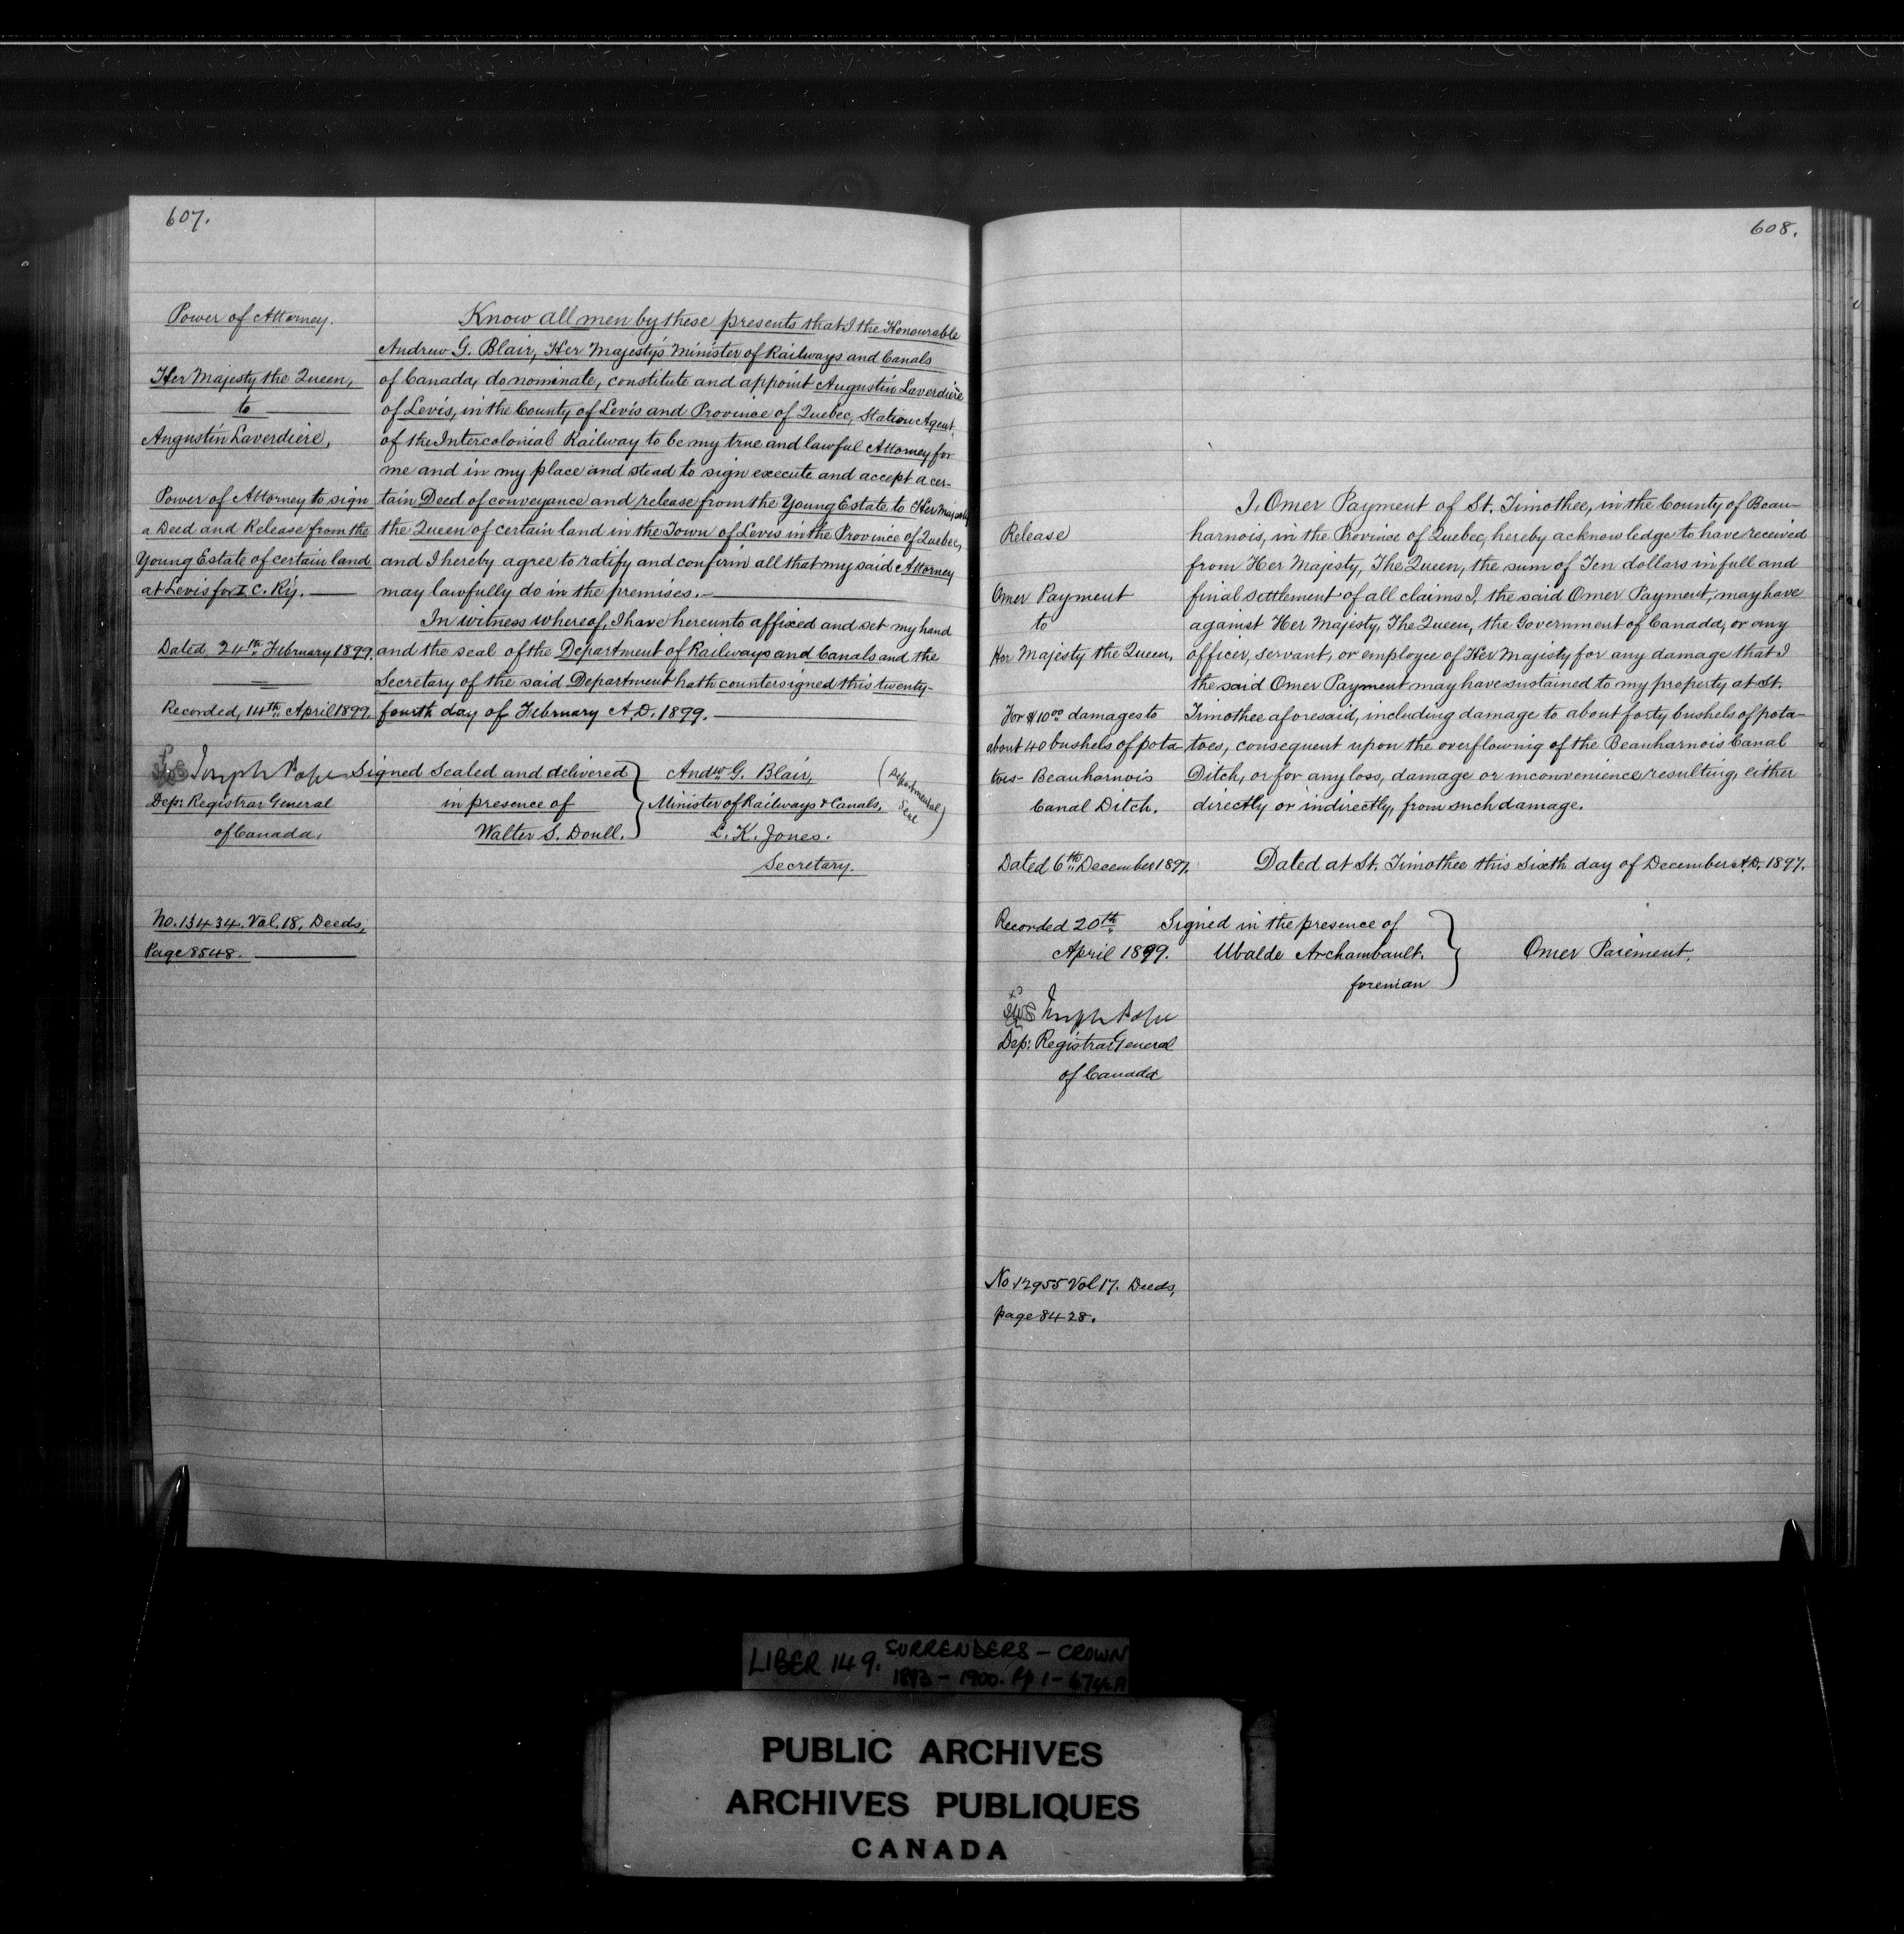 607.
Power of Attorney.
Her Majesty the Queen,
to
Augustin Laverdière,
Power of Attorney to sign
a Deed and Release from the
Young Estate of certain land
at Levis for I. C. Ry.
Dated 24th February 1899.
Recorded, 14th April 1899.
Joseph Pope
Dep: Registrar General
of Canada.
No. 13434. Vol. 18, Deeds,
Page 8548.
Know all men by these presents that I the Honourable
Andrew G. Blair, Her Majesty's Minister of Railways and Canals
of Canada, do nominate, constitute and appoint Augustin Laverdière
of Levis, in the County of Levis and Province of Quebec, Station Agent,
of the Intercolonial Railway to be my true and lawful Attorney for
me and in my place and stead to sign execute and accept a cer-
tain Deed of conveyance and release from the Young Estate to Her Majesty
the Queen of certain land in the Town of Levis in the Province of Quebec,
and I hereby agree to ratify and confirm all that my said Attorney
may lawfully do in the premises.
In witness whereof, I have hereunto affixed and set my hand
and the seal of the Department of Railways and Canals and the
Secretary of the said Department hath countersigned this twenty-
fourth day of February A.D. 1899.
Signed sealed and delivered
in presence of
Walter S. Doull.
Andw G. Blair,
Minister of Railways & Canals,
L. K. Jones.
Secretary.
(Departmental
Seal)
608.
Release
Omer Payment
to
Her Majesty the Queen,
For $10.00 damages to
about 40 bushels of pota
toes - Beauharnois
Canal Ditch.
Dated 6th December 1897.
Recorded 20th
April 1899.
Joseph Pope
Dep: Registrar General
of Canada
No. 12955 Vol 17. Deeds,
page 8428.
I, Omer Payment of St. Timothee, in the County of Beau-
harnois, in the Province of Quebec, hereby acknowledge to have received
from Her Majesty, The Queen, the sum of Ten dollars in full and
final settlement of all claims I, the said Omer Payment, may have
against Her Majesty, The Queen, the Government of Canada, or any
officer, servant, or employee of Her Majesty for any damage that I
the said Omer Payment may have sustained to my property at St.
Timothee aforesaid, including damage to about forty bushels of pota-
toes, consequent upon the overflowing of the Beauharnois Canal
Ditch, or for any loss, damage or inconvenience resulting, either
directly or indirectly, from such damage.
Dated at St. Timothee this Sixth day of December A.D. 1897.
Signed in the presence of
Ubalde Archambault.
foreman
Omer Paiement.
LIBER 149. SURRENDERS - CROWN
1893 - 1900. Pp 1 -
PUBLIC ARCHIVES
ARCHIVES PUBLIQUES
CANADA